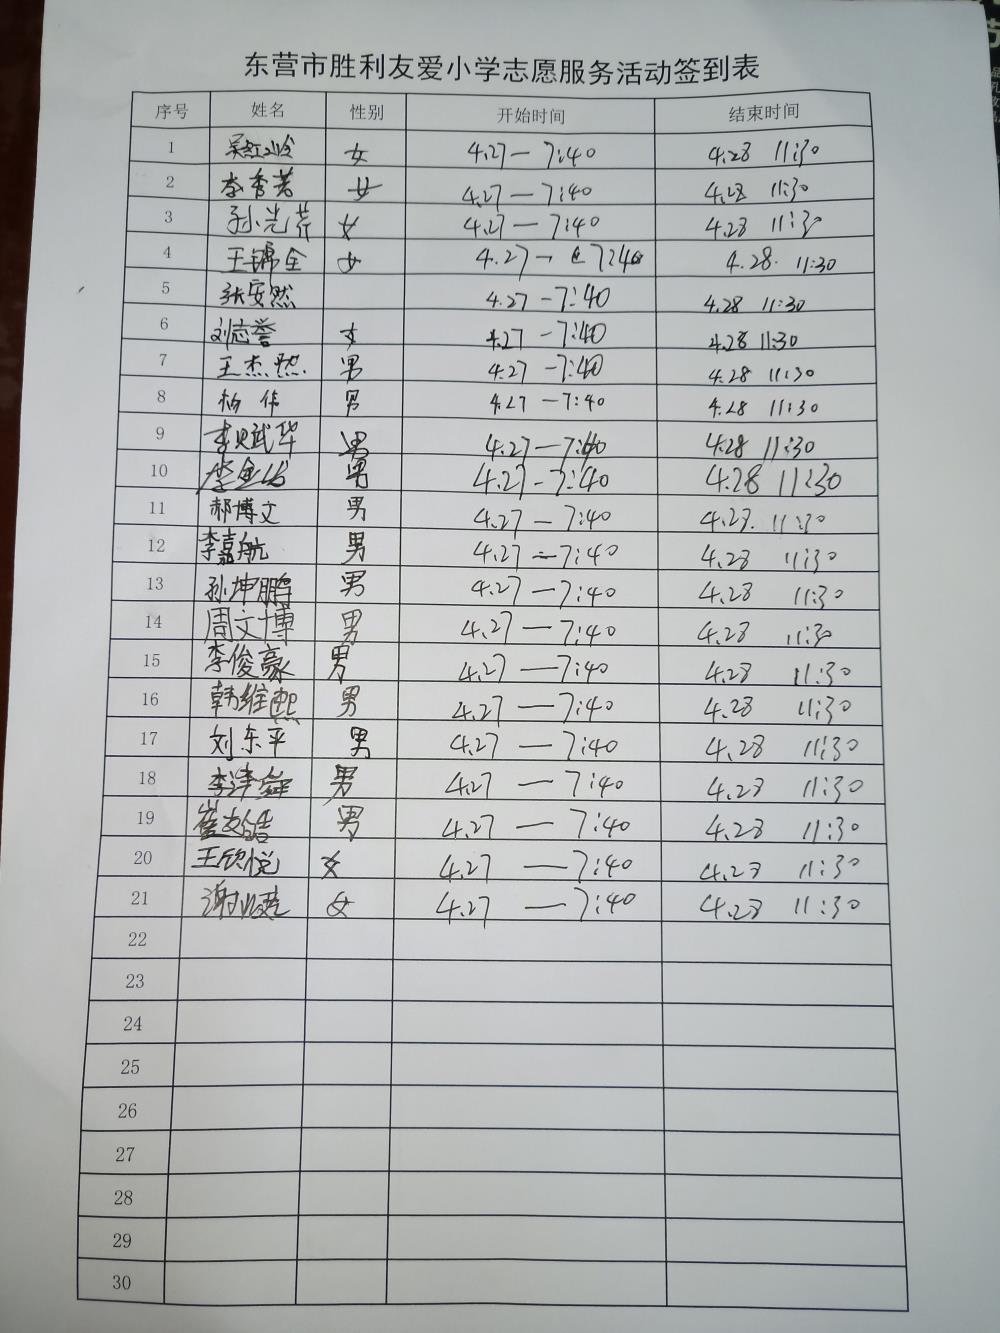 东营市胜利友爱小学志愿服务活动签到表
序号 姓名 性别 开始时间 结束时间
1 女 4.27—7:40 4.28 11:30
2 李秀芳 女 4.27—7:40 4.28 11:30
3 孙光芹 女 4.27—7:40 4.28 11:30
4 王锦全 女 4.27—7:40 4.28. 11:30
5 张安然 4.27—7:40 4.28 11:30
6 刘志誉 女 4.27—7:40 4.28 11:30
7 王杰然 男 4.27—7:40 4.28 11:30
8 杨伟 男 4.27—7:40 4.28 11:30
9 男 4.27—7:40 4.28 11:30
10 男 4.27—7:40 4.28 11:30
11 郝博文 男 4.27—7:40 4.28. 11:30
12 李嘉航 男 4.27—7:40 4.28 11:30
13 孙坤鹏 男 4.27—7:40 4.28 11:30
14 周文博 男 4.27—7:40 4.28 11:30
15 李俊豪 男 4.27—7:40 4.28 11:30
16 韩维熙 男 4.27—7:40 4.28 11:30
17 刘东平 男 4.27—7:40 4.28 11:30
18 李泽舜 男 4.27—7:40 4.28 11:30
19 男 4.27—7:40 4.28 11:30
20 王欣悦 女 4.27—7:40 4.28 11:30
21 女 4.27—7:40 4.28 11:30
22
23
24
25
26
27
28
29
30